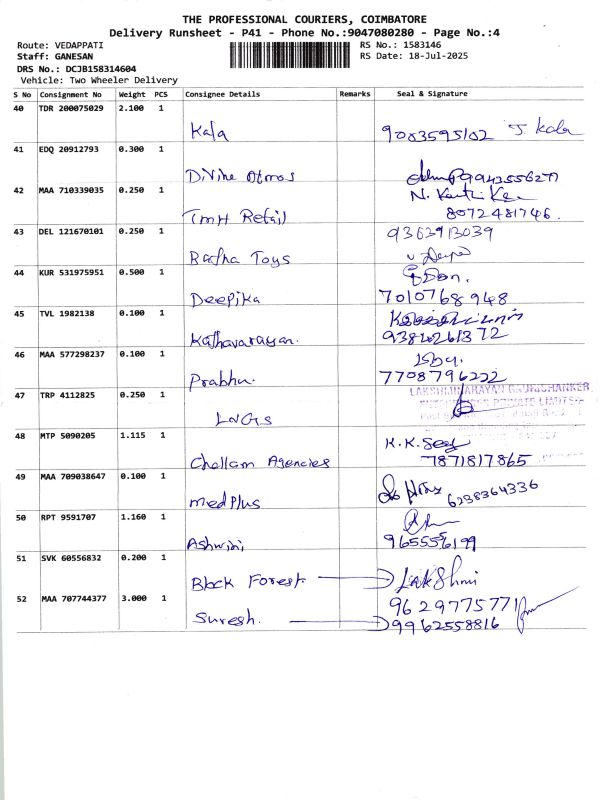 THE PROFESSIONAL COURIERS, COIMBATORE
Delivery Runsheet - P41 - Phone No.:9047080280 - Page No.:4
Route: VEDAPPATI
RS No.: 1583146
Staff: GANESAN
RS Date: 18-Jul-2025
DRS No.: DCJB158314604
Vehicle: Two Wheeler Delivery
S No Consignment No Weight PCS Consignee Details Remarks Seal & Signature
40 TDR 200075029 2.100 1
Kala 9003595102 J. Kala
41 EDQ 20912793 0.300 1
Divine 9943556277
42 MAA 710339035 0.250 1
TMH Retail 8072481746.
43 DEL 121670101 0.250 1 9362913039
Radha Toys
44 KUR 531975951 0.500 1
Deepika 7010768948
45 TVL 1982138 0.100 1
Kathavarayan. 9384261372
46 MAA 577298237 0.100 1
Prabhu. 7708796222
47 TRP 4112825 0.250 1
LNGS
48 MTP 5090205 1.115 1 K.K.
Challam Agencies 7871817865
49 MAA 709038647 0.100 1
MedPlus 6238364336
50 RPT 9591707 1.160 1
Ashwini 9655556199
51 SVK 60556832 0.200 1
Block Forest Lakshmi
52 MAA 707744377 3.000 1 9629775771
Suresh. 9962558816